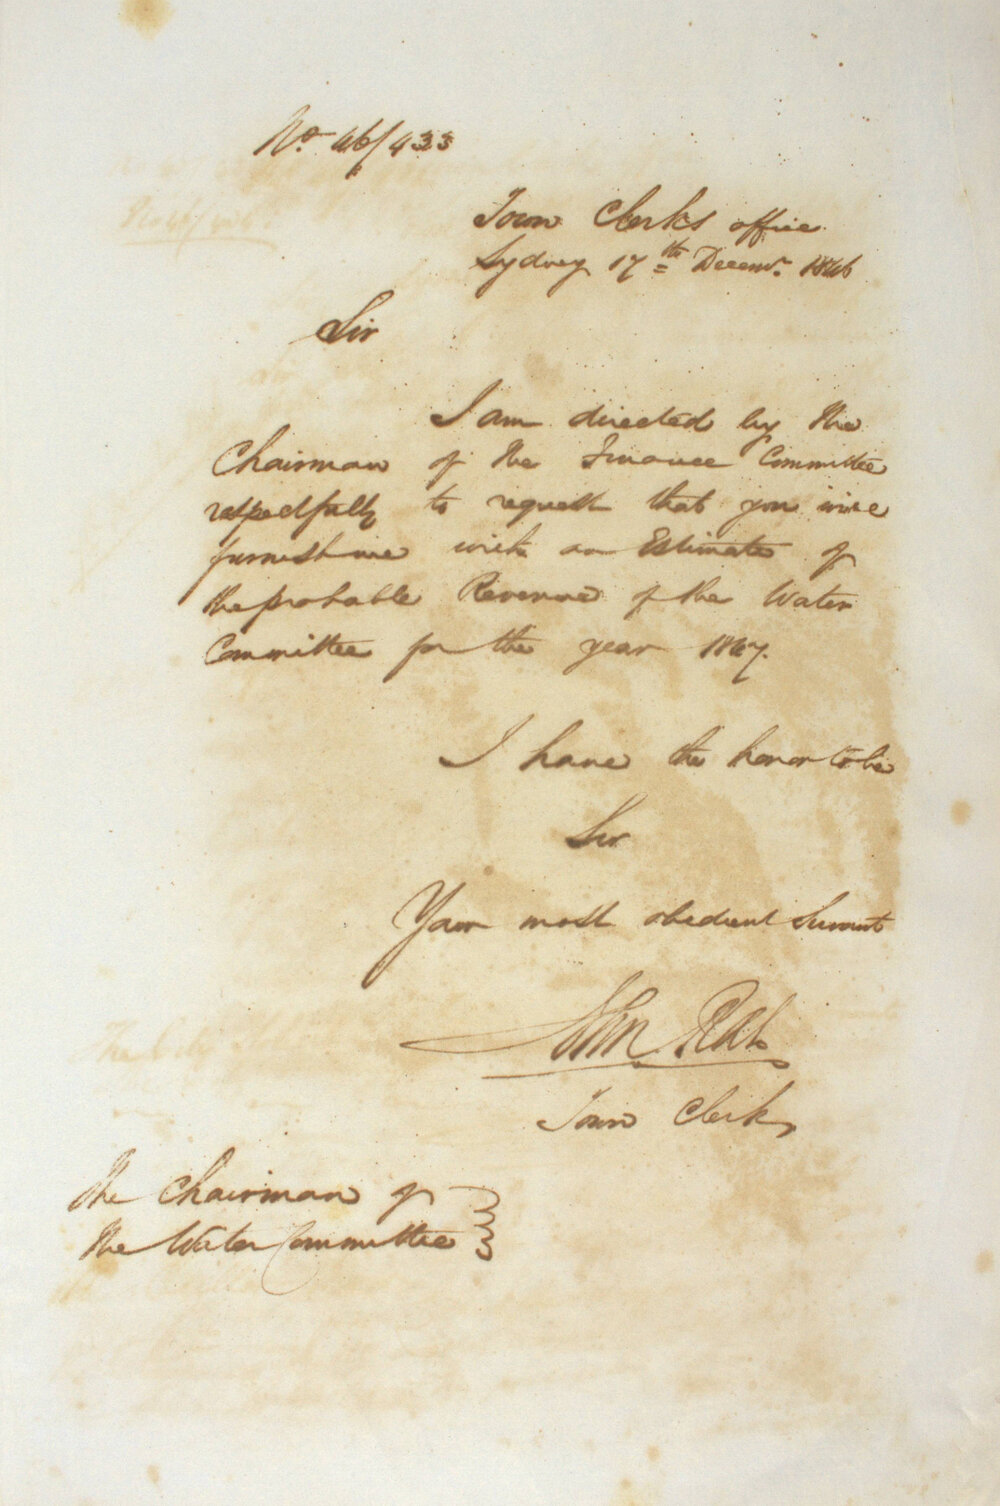 No. 46/433
Town Clerks office
Sydney 17th Decemr. 1846
Sir
I am directed by the
Chairman of the Finance Committee
respectfully to request that you will
furnish me with an Estimate of
the probable Revenue of the Water
Committee for the year 1847.
I have the honor to be
Sir
Your most obedient Servant
John Rae
Town Clerk
The Chairman of
the Water Committee